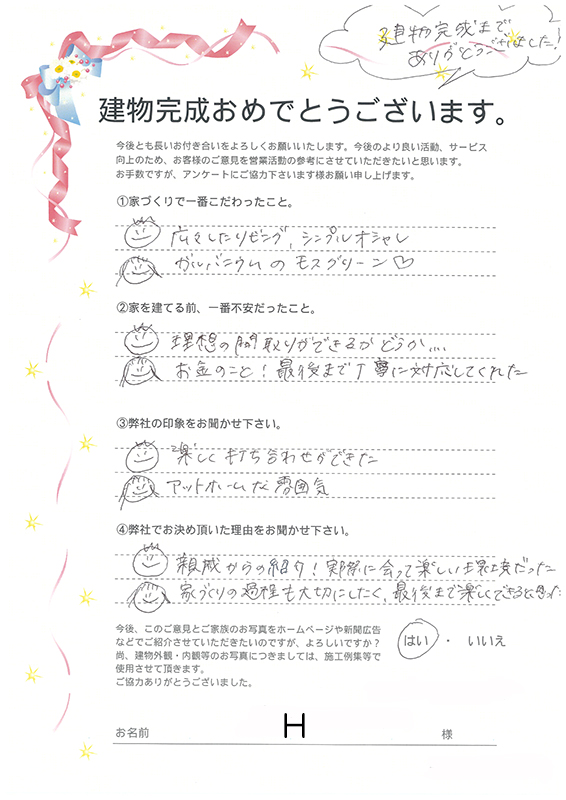 建物完成まで
ありがとうございました!
建物完成おめでとうございます。
今後とも長いお付き合いをよろしくお願いいたします。今後のより良い活動、サービス
向上のため、お客様のご意見を営業活動の参考にさせていただきたいと思います。
お手数ですが、アンケートにご協力下さいます様お願い申し上げます。
①家づくりで一番こだわったこと。
広々したリビング、シンプルオシャレ
ガルバニウムのモスグリーン♡
②家を建てる前、一番不安だったこと。
理想の間取りができるかどうか…
お金のこと!最後まで丁寧に対応してくれた
③弊社の印象をお聞かせ下さい。
楽しく打ち合わせができた
アットホームな雰囲気
④弊社でお決め頂いた理由をお聞かせ下さい。
親戚からの紹介!実際に会って楽しい環境だった
家づくりの過程も大切にしたく、最後まで楽しくできると思った
今後、このご意見とご家族のお写真をホームページや新聞広告
などでご紹介させていただきたいのですが、よろしいですか?
はい ・ いいえ
尚、建物外観・内観等のお写真につきましては、施工例集等で
使用させて頂きます。
ご協力ありがとうございました。
お名前 H 様